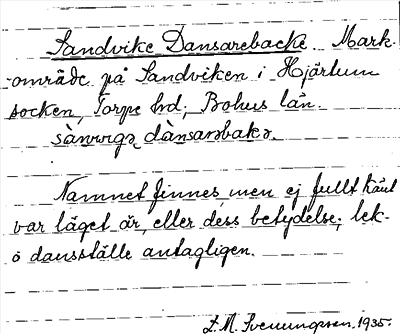 Sandvike Dansarebacke. Mark-
område på Sandviken i Hjärtum
socken, Torpe hd; Bohus län.
sànvigə dànsarəbakə.
Namnet finnes, men ej fullt känt
var läget är, eller dess betydelse; lek-
o dansställe antagligen.
L. M. Svenungsson. 1935.